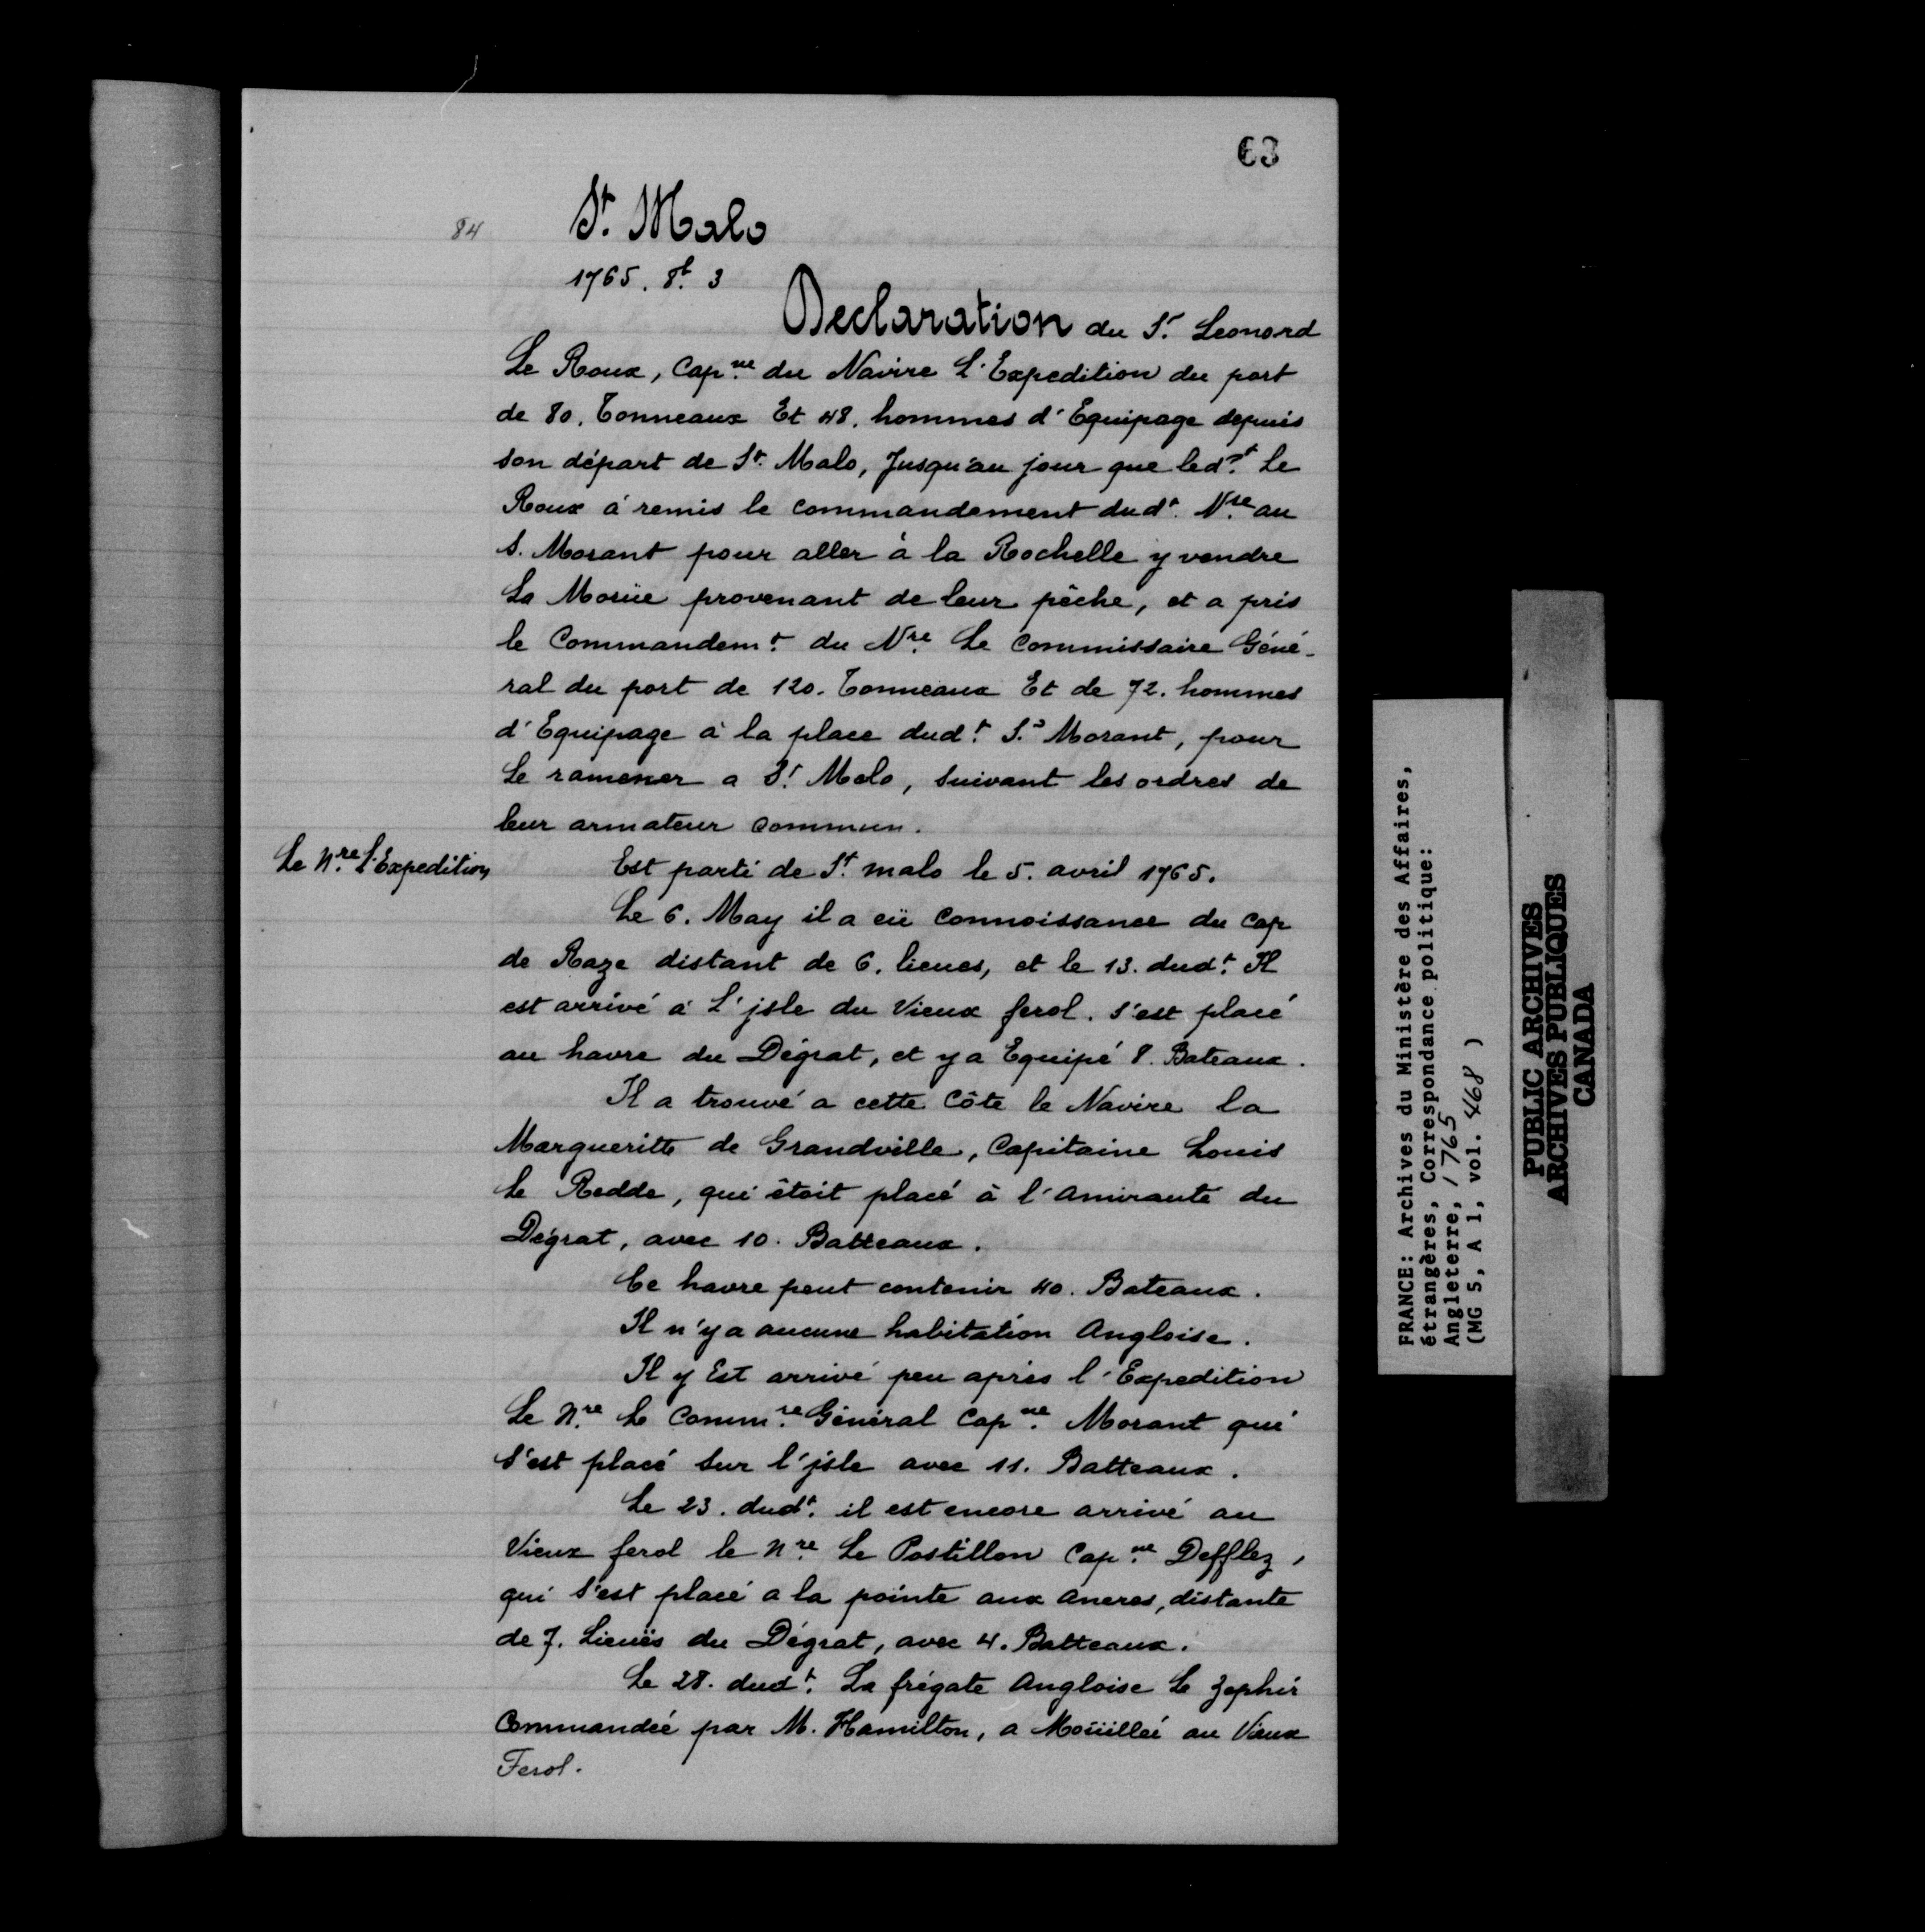 63
84
St. Malo
1765. 8t. 3
Declaration du Sr. Leonord
Le Roux, Capne. du Navire L'Expedition du port
de 80. Tonneaux Et 48. hommes d'Equipage depuis
son départ de St. Malo, Jusqu'au jour que ledt. Le
Roux á remis le commandement dudt. Nre. au
S. Morant pour aller à la Rochelle y vendre
La Moruë provenant de leur pêche, et a pris
le Commandemt. du Nre. Le Commissaire Géné-
ral du port de 120. Tonneaux Et de 72. hommes
d'Equipage à la place dudt. Sr. Morant, pour
Le ramener a St. Malo, suivant les ordres de
leur armateur commun.
Le Nre. L'Expedition
Est parti de St. malo le 5. avril 1765.
Le 6. May il a eü connoissance du Cap
de Raze distant de 6. lieues, et le 13. dudt. Il
est arrivé à L'jsle du Vieux ferol. S'est placé
au havre du Dégrat, et y a Equipé 8. Bateaux.
Il a trouvé a cette Côte le Navire la
Margueritte de Grandville, Capitaine Louis
le Redde, qui étoit placé à l'Amirauté du
Dégrat, avec 10. Batteaux.
Ce havre peut contenir 40. Bateaux.
Il n'y a aucune habitation Angloise.
Il y Est arrivé peu aprés l'Expedition
Le Nre. Le Commre. Général Capne. Morant qui
s'est placé sur l'jsle avec 11. Batteaux.
Le 23. dudt. il est encore arrivé au
Vieux ferol le Nre. Le Postillon Capne. Defflez,
qui s'est placé a la pointe aux Ancres, distante
de 7. Lieuës du Dégrat, avec 4. Batteaux.
Le 28. dudt. La frégate Angloise Le Zephir
Commandée par M. Hamilton, a Moüilleé au Vieux
Ferol.
FRANCE: Archives du Ministère des Affaires,
étrangères, Correspondance politique:
Angleterre, 1765
(MG 5, A 1, vol. 468 )
PUBLIC ARCHIVES
ARCHIVES PUBLIQUES
CANADA